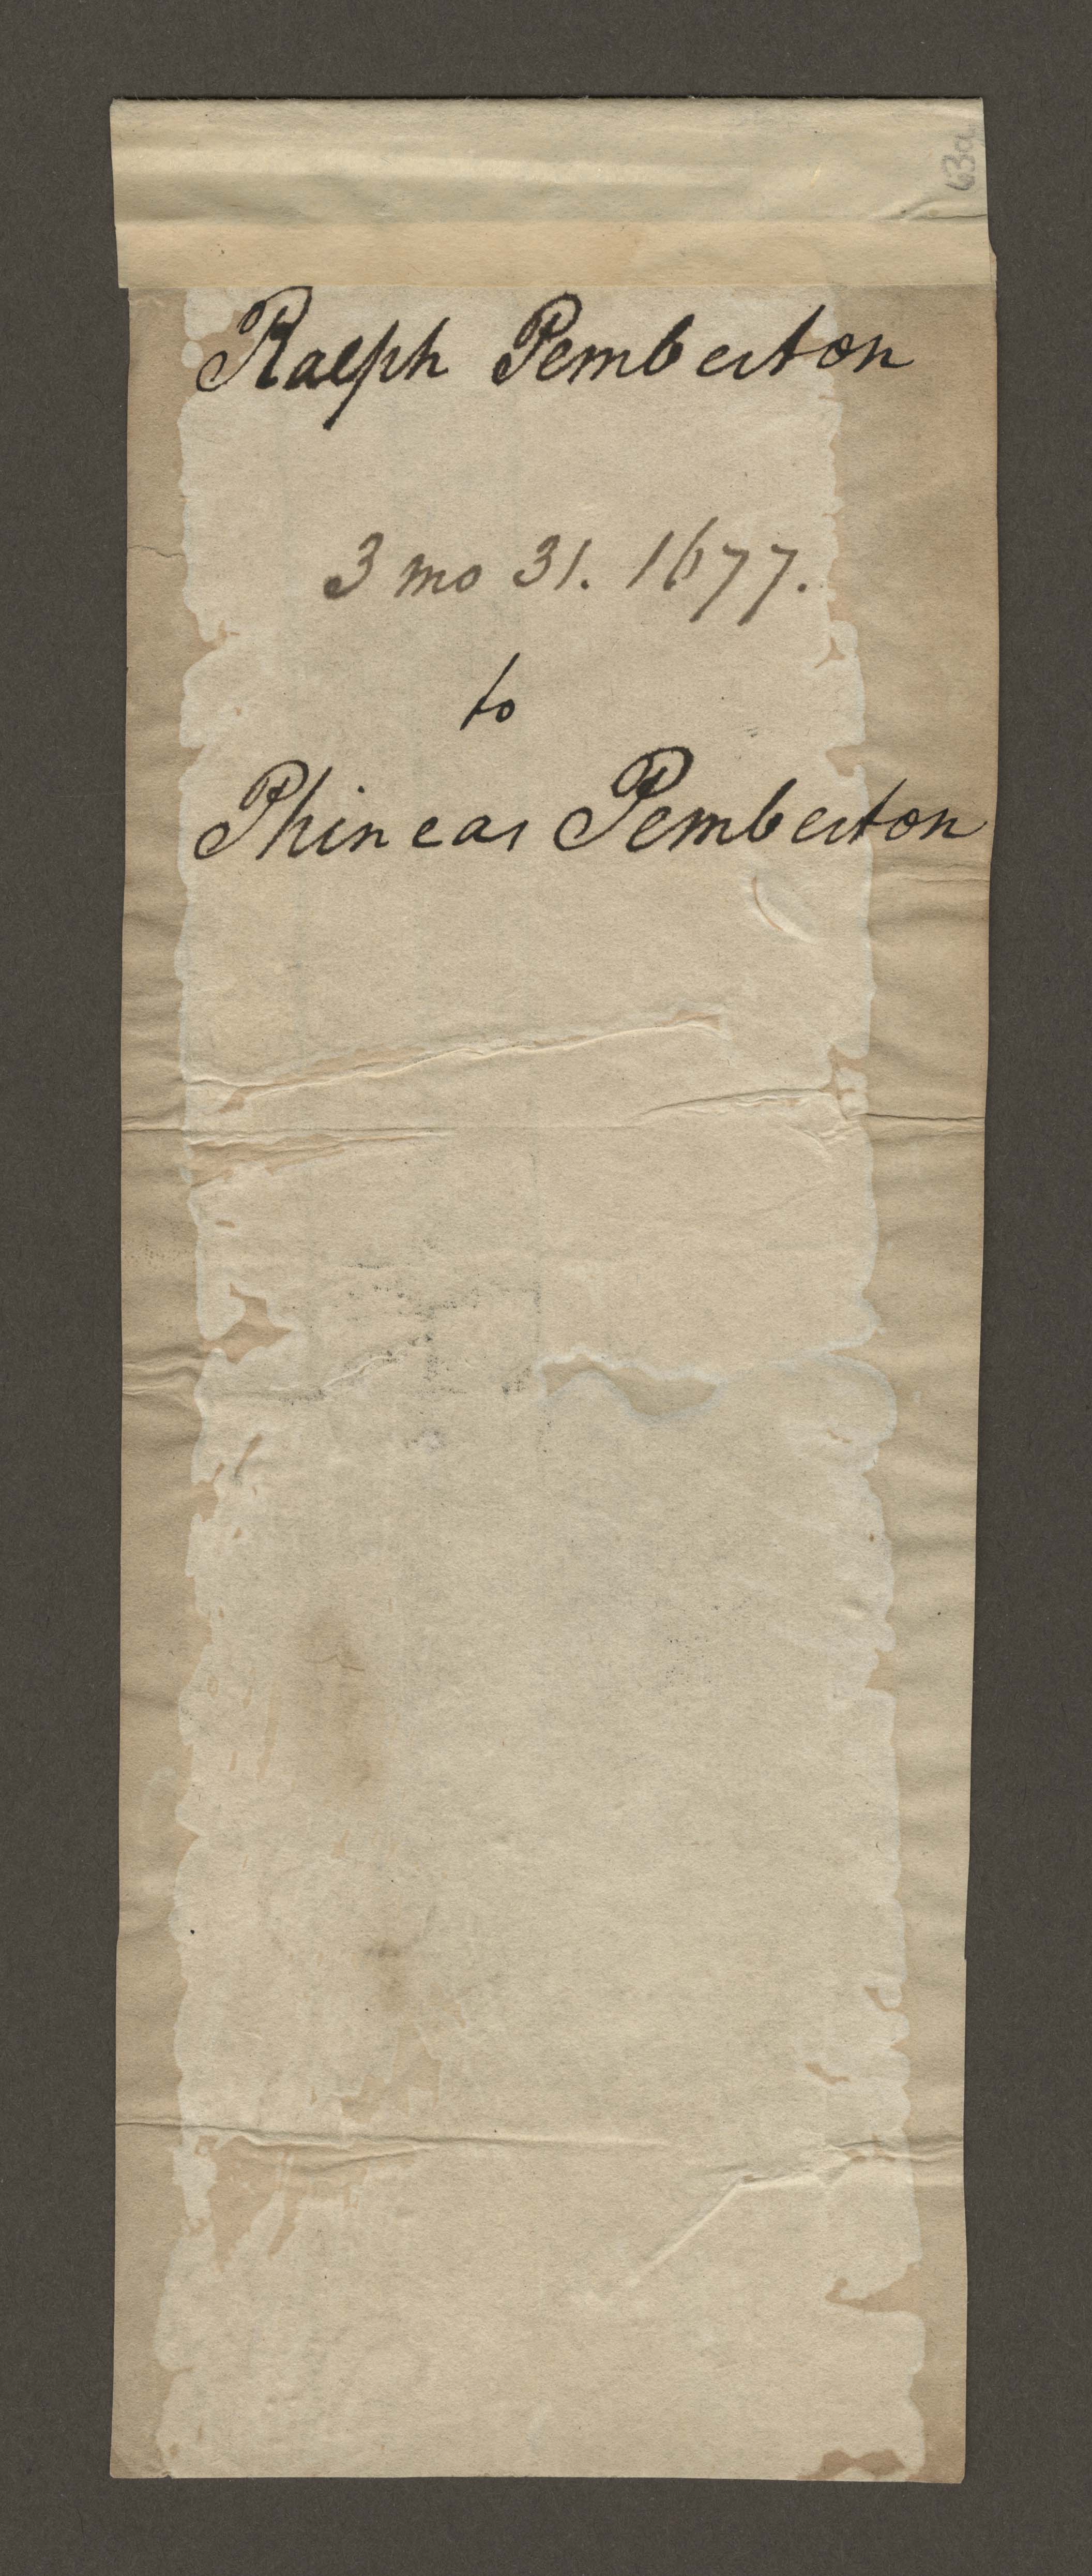 63a
Ralph Pemberton
3 mo 31. 1677.
to
Phineas Pemberton